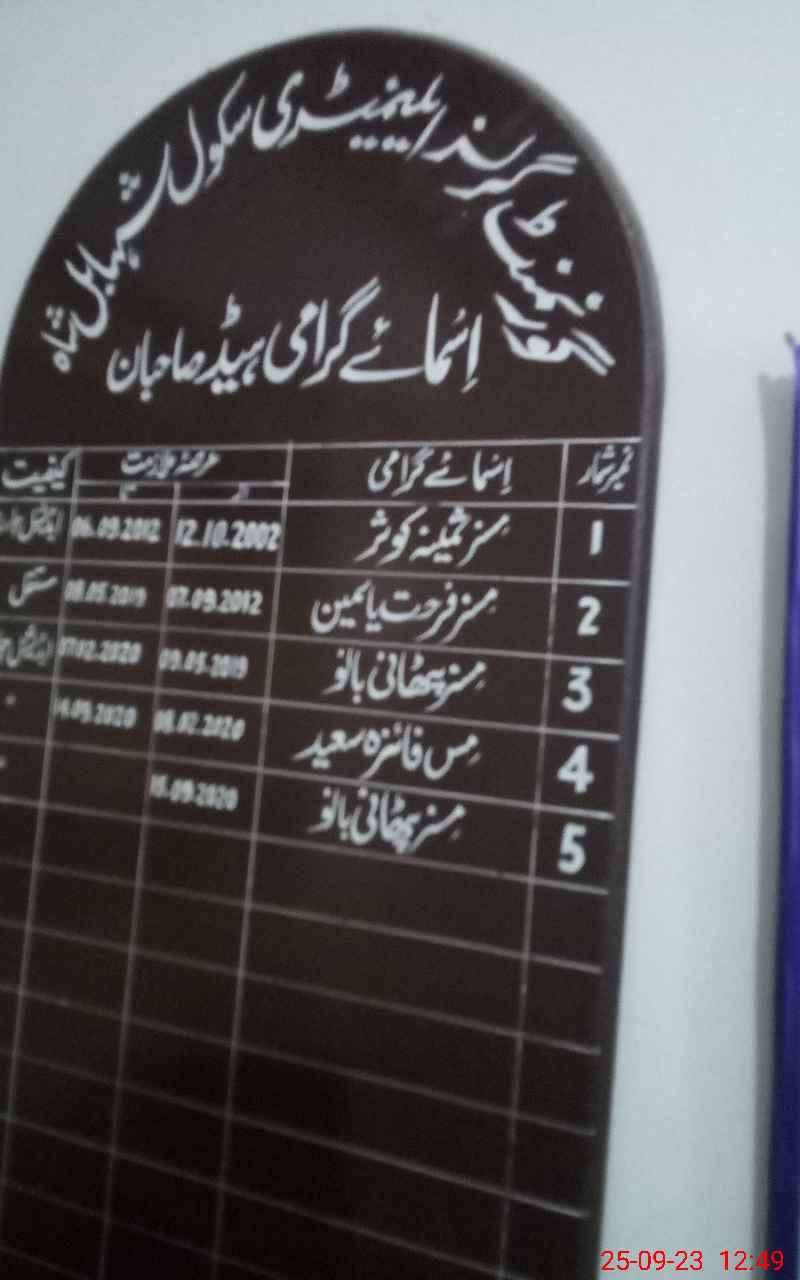 گورنمنٹ گرلز ایلیمنٹری سکول شہابل شاہ
اسمائے گرامی ہیڈ صاحبان
نمبر شمار اسمائے گرامی عرصہ ملازمت کیفیت
از تا
1 مسز ثمینہ کوثر 12.10.2002 06.09.2012 ایڈیشنل
2 مسز فرحت یاسمین 07.09.2012 08.05.2019 مستقل
3 مسز پٹھانی بانو 09.05.2019 07.02.2020 ایڈیشنل
4 مس فائزہ سعید 08.02.2020 14.09.2020 "
5 مسز پٹھانی بانو 15.09.2020 "
25-09-23 12:49